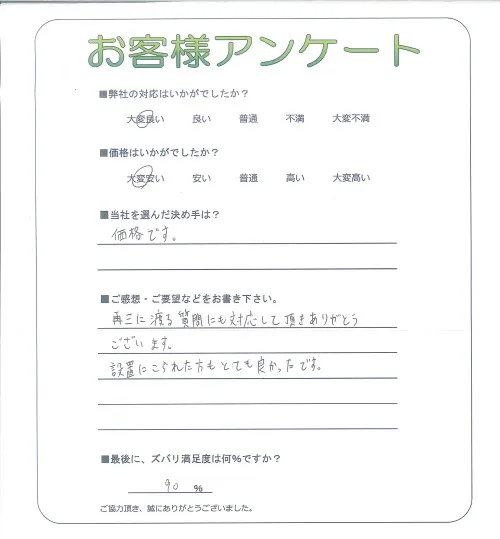 お客様アンケート
■弊社の対応はいかがでしたか？
大変良い 良い 普通 不満 大変不満
■価格はいかがでしたか？
大変安い 安い 普通 高い 大変高い
■当社を選んだ決め手は？
価格です。
■ご感想・ご要望などをお書き下さい。
再三に渡る質問にも対応して頂きありがとう
ございます。
設置にこられた方もとても良かったです。
■最後に、ズバリ満足度は何%ですか？
90 %
ご協力頂き、誠にありがとうございました。